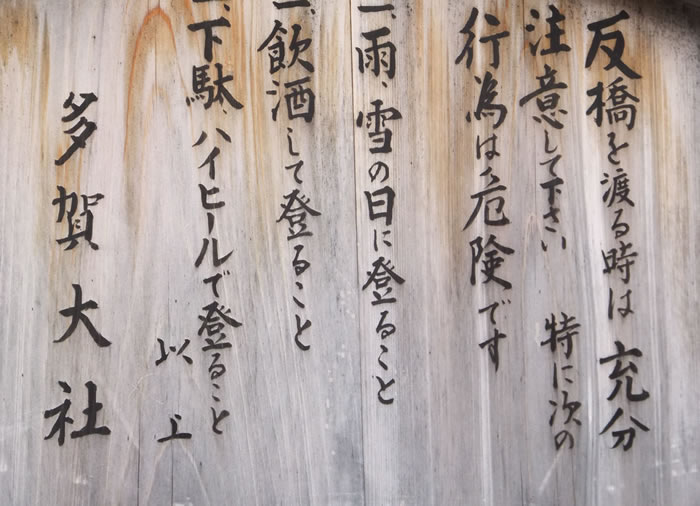 反橋を渡る時は充分
注意して下さい 特に次の
行為は危険です
一、雨、雪の日に登ること
一、飲酒して登ること
一、下駄、ハイヒールで登ること
以上
多賀大社